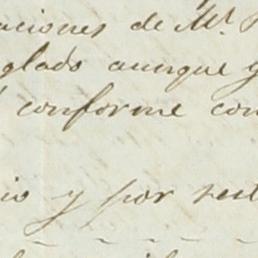 aciones de Mr.
glado aunque y
conforme con
io y por rest